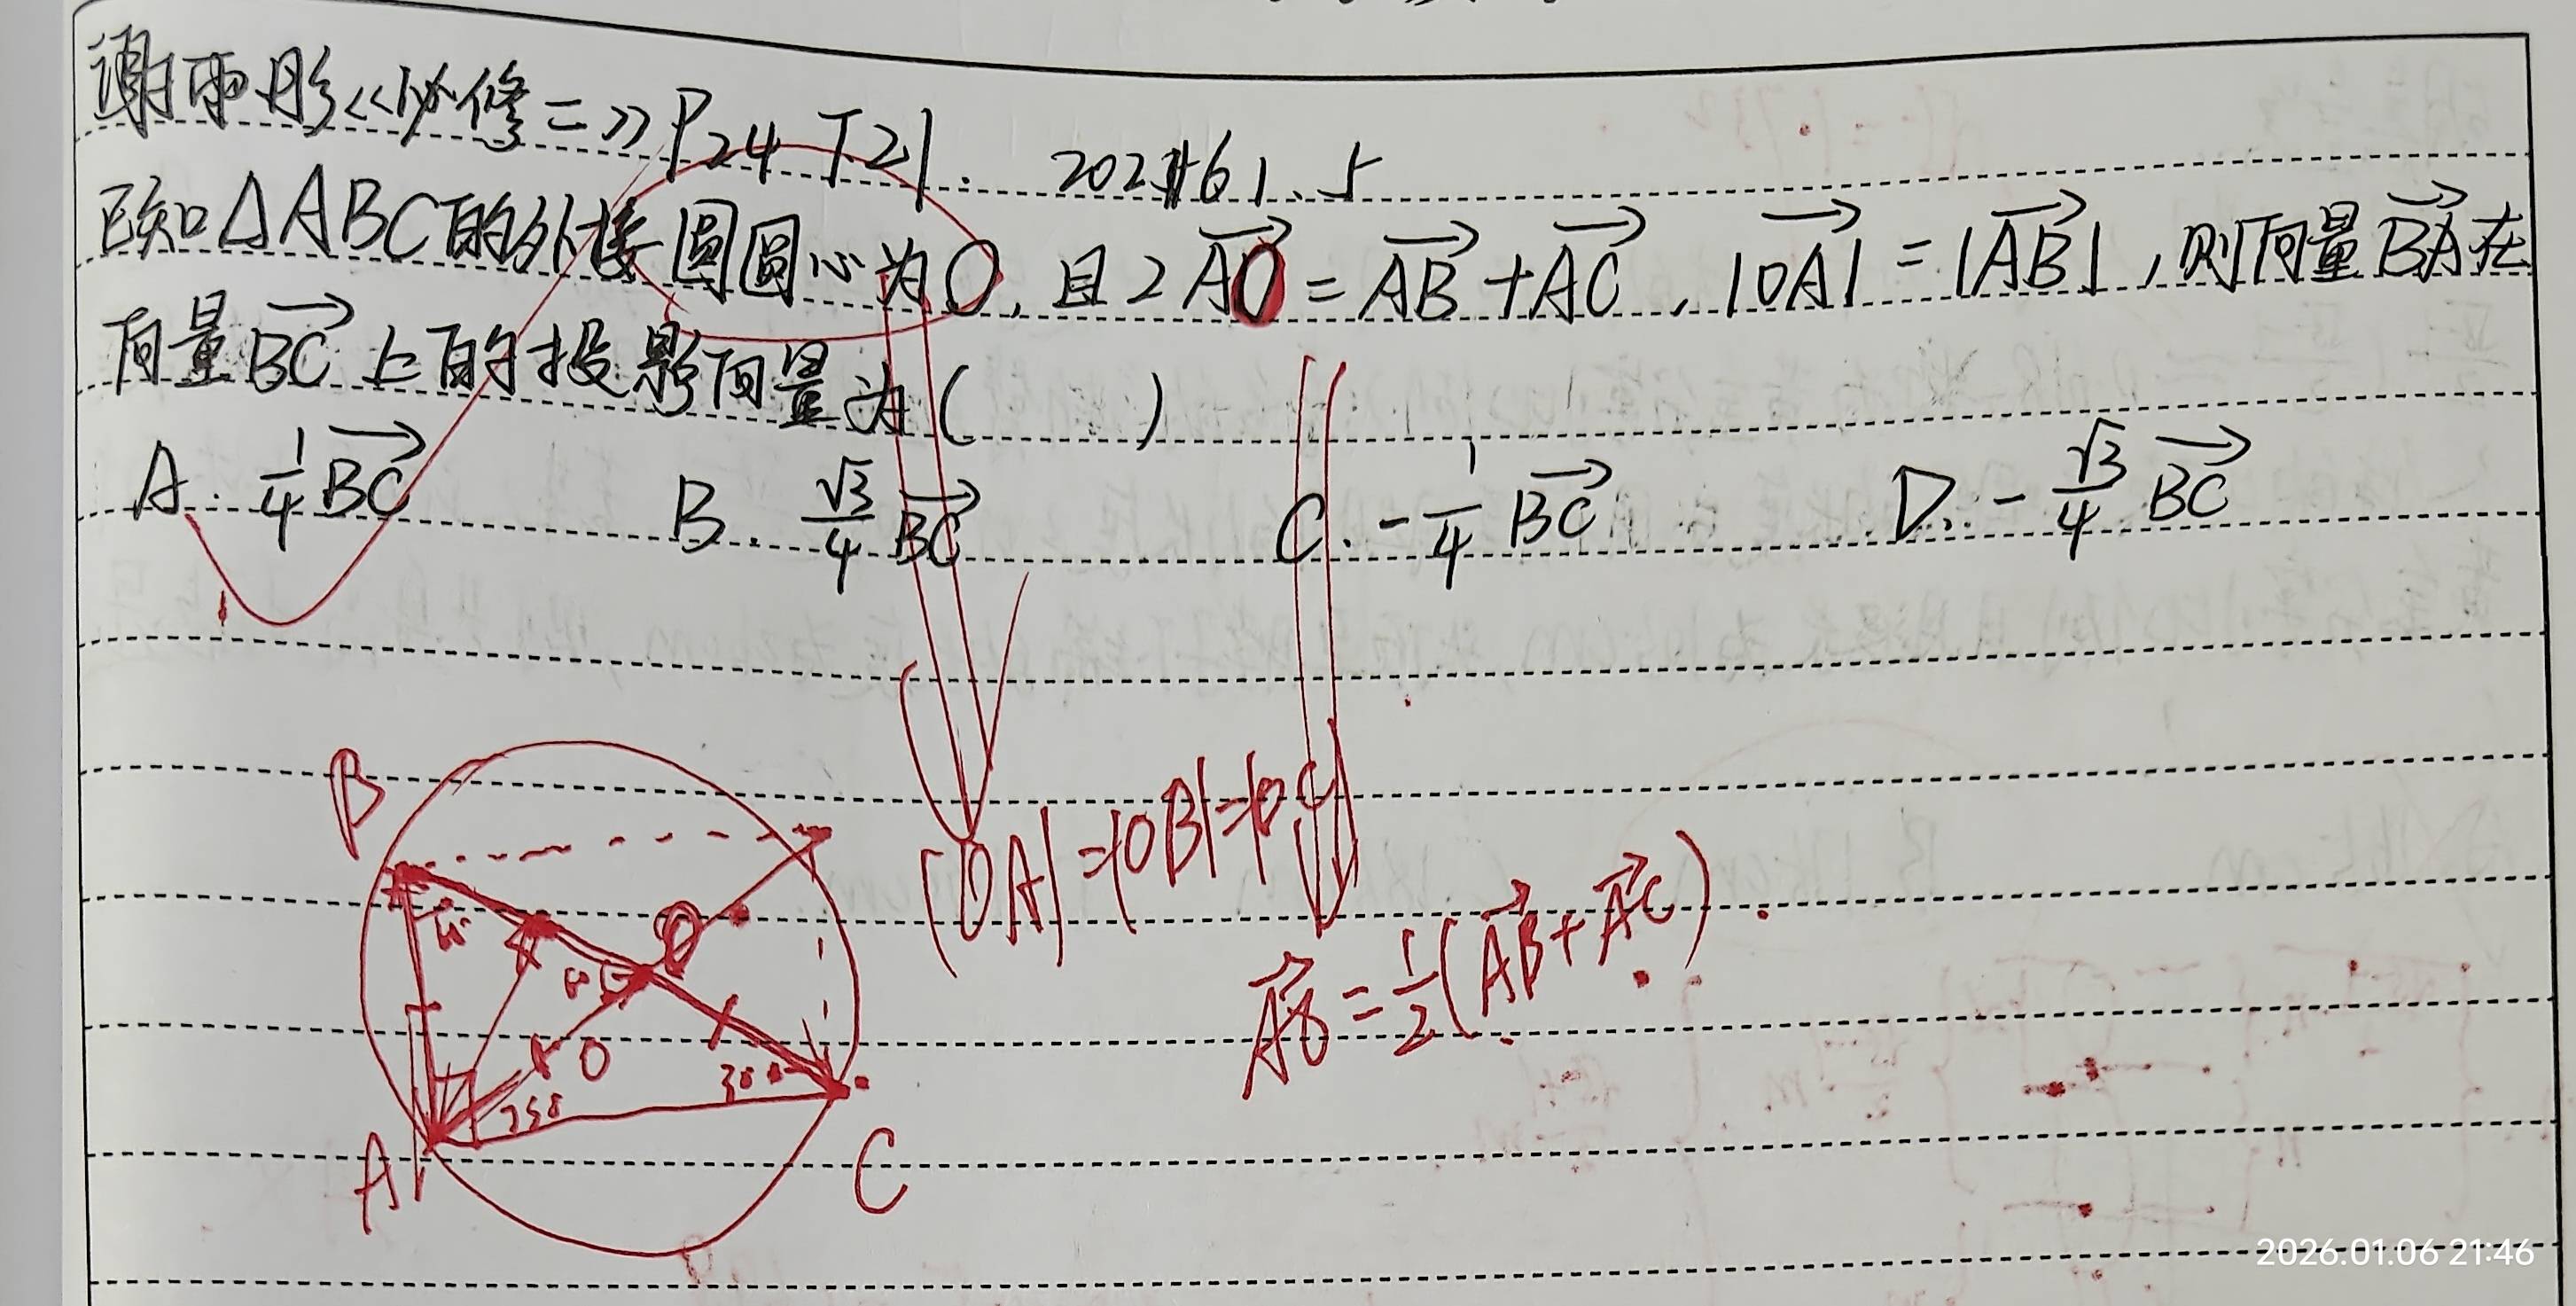 谢雨彤《必修二》P24 T21. 2026 1.5
已知△ABC的外接圆圆心为O,且2AO=AB+AC,|OA|=|AB|,则向量BA在
向量BC上的投影向量为( )
A. 1/4 BC B. √3/4 BC C. -1/4 BC D. -√3/4 BC
B
|OA|=|OB|=|OC|
60° O
60° AO=1/2(AB+AC).
O 30°
A C
2026.01.06 21:46